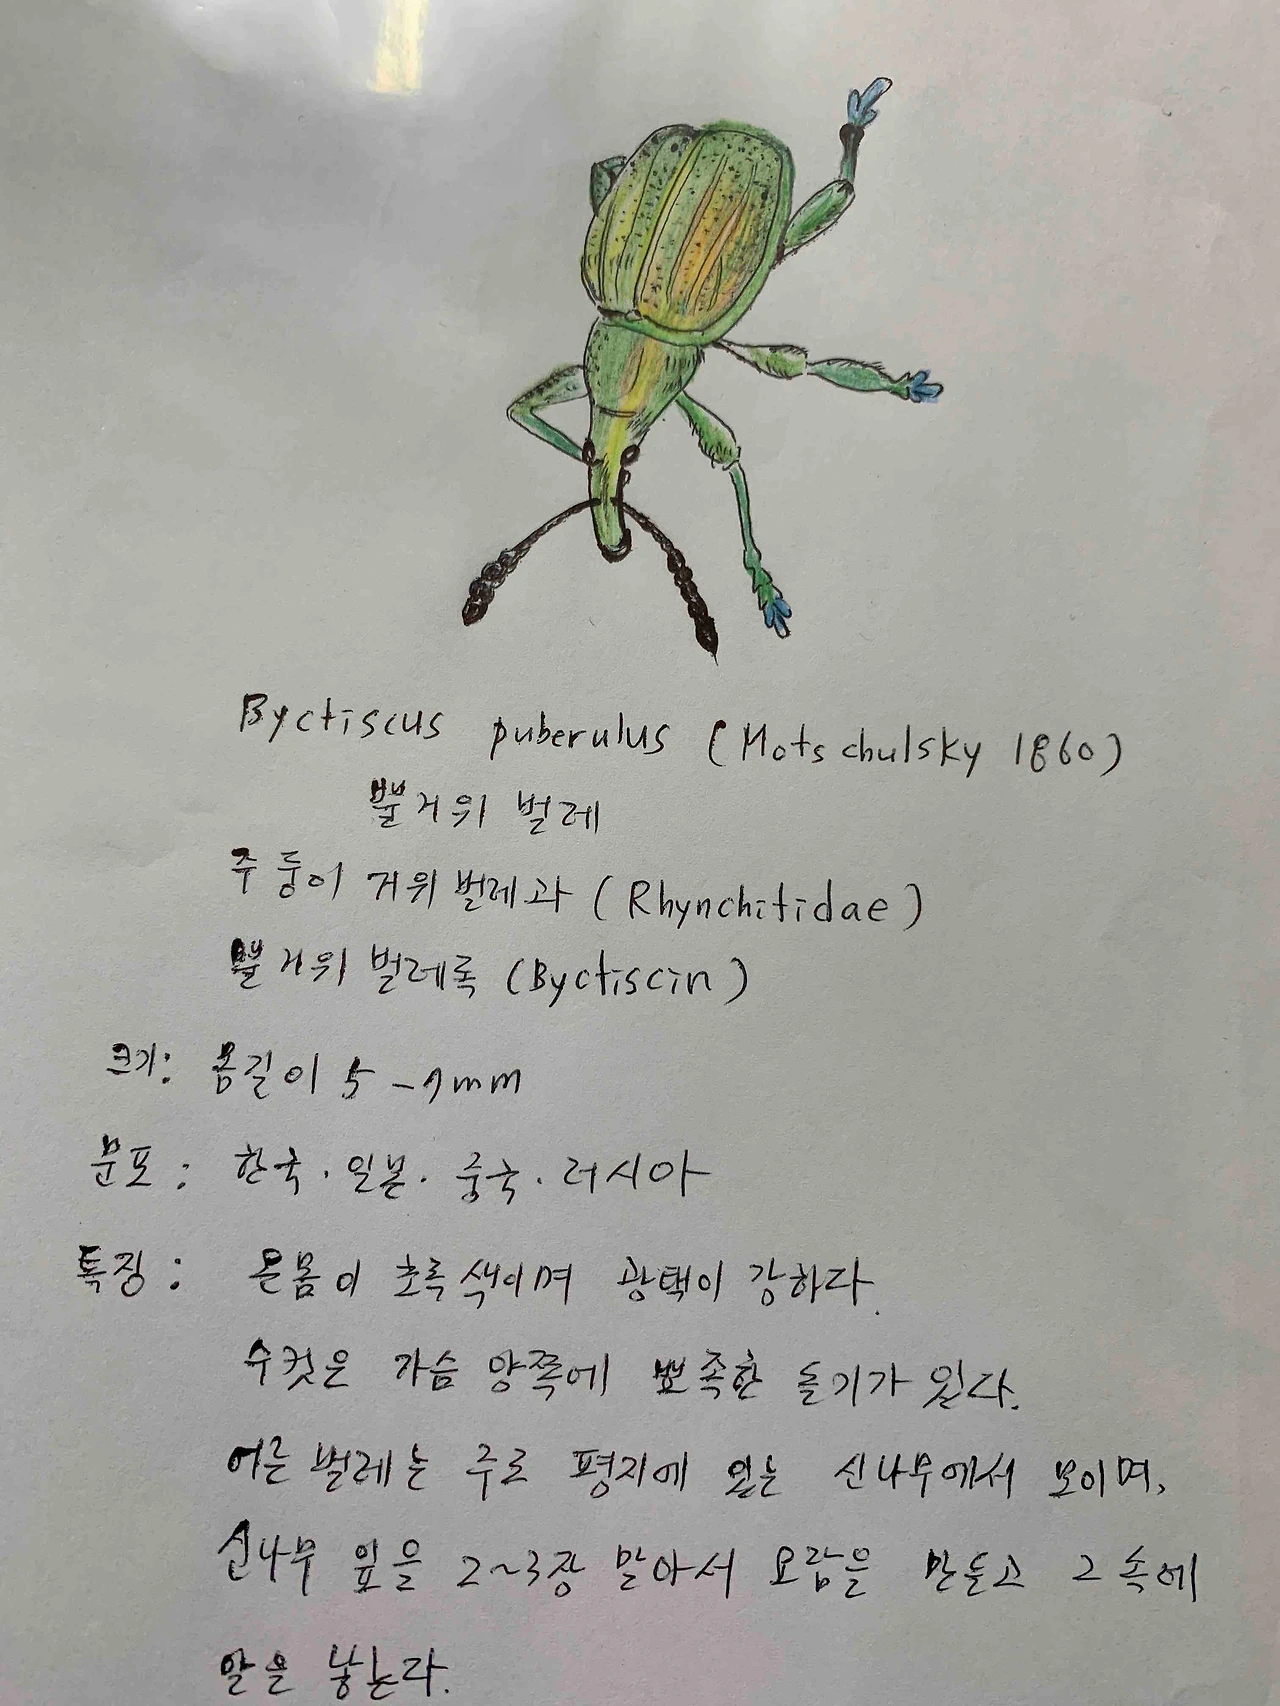 Byctiscus puberulus (Motschulsky 1860)
뿔거위 벌레
주둥이 거위벌레과 (Rhynchitidae)
뿔거위 벌레록 (Byctiscin)
크기: 몸길이 5-7mm
분포: 한국·일본·중국·러시아
특징: 온몸이 초록색이며 광택이 강하다.
수컷은 가슴 양쪽에 뾰족한 돌기가 있다.
어른벌레는 주로 평지에 있는 신나무에서 모이며,
신나무 잎을 2~3장 말아서 요람을 만들고 그 속에
알을 낳는다.